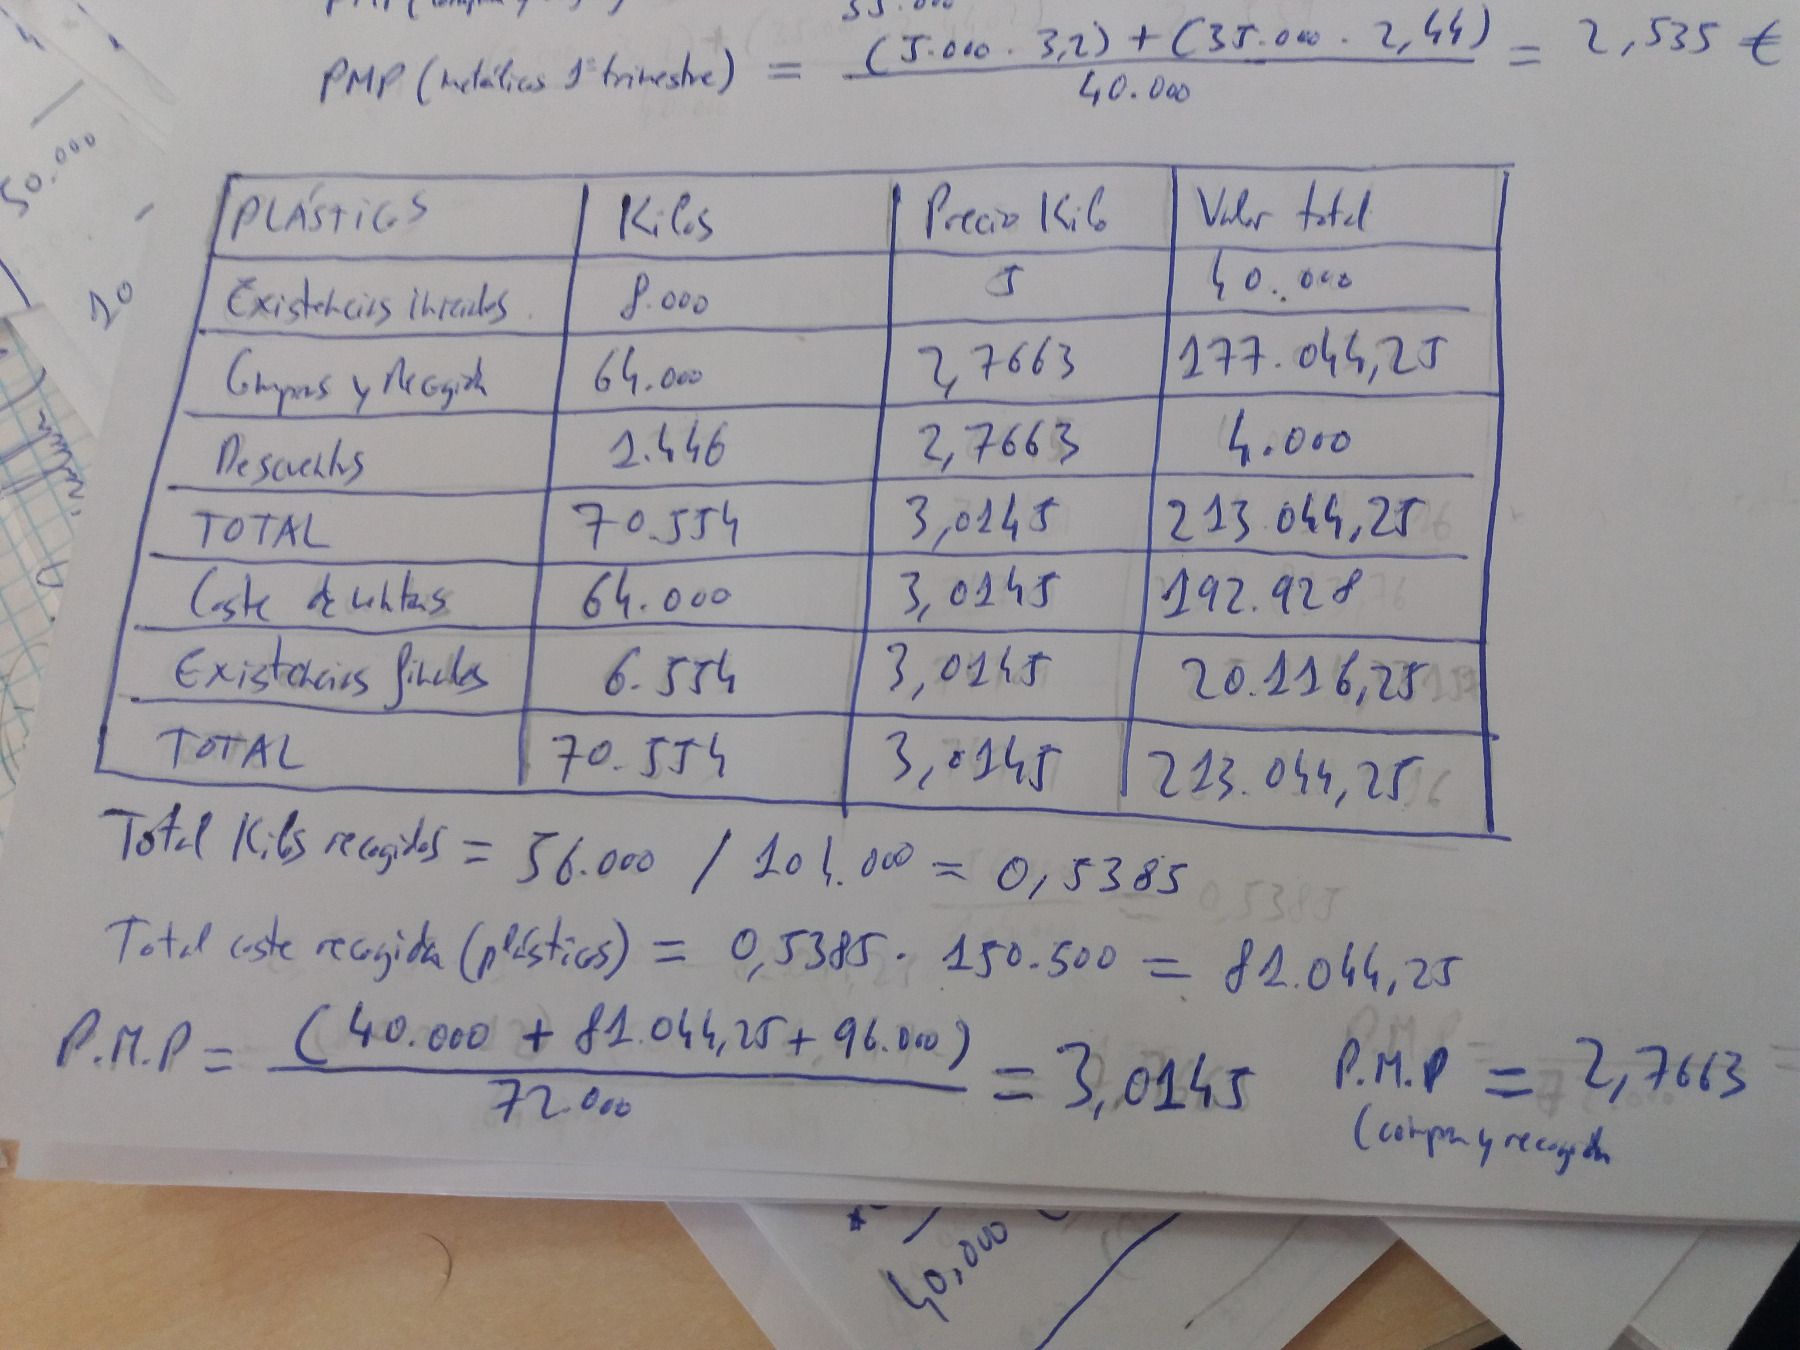 35.000
PMP (metálicos 1er trimestre) = (5.000 · 3,2) + (35.000 · 2,44) / 40.000 = 2,535 €
PLÁSTICOS Kilos Precio Kilo Valor total
Existencias iniciales 8.000 5 40.000
Compras y Recogida 64.000 2,7663 177.044,25
Descuentos 1.446 2,7663 4.000
TOTAL 70.554 3,0145 213.044,25
Coste de ventas 64.000 3,0145 192.928
Existencias finales 6.554 3,0145 20.116,25
TOTAL 70.554 3,0145 213.044,25
Total Kilos recogidos = 56.000 / 104.000 = 0,5385
Total coste recogida (plásticos) = 0,5385 · 150.500 = 81.044,25
P.M.P = (40.000 + 81.044,25 + 96.000) / 72.000 = 3,0145
P.M.P = 2,7663
(compra y recogida
50.000
20
40,000